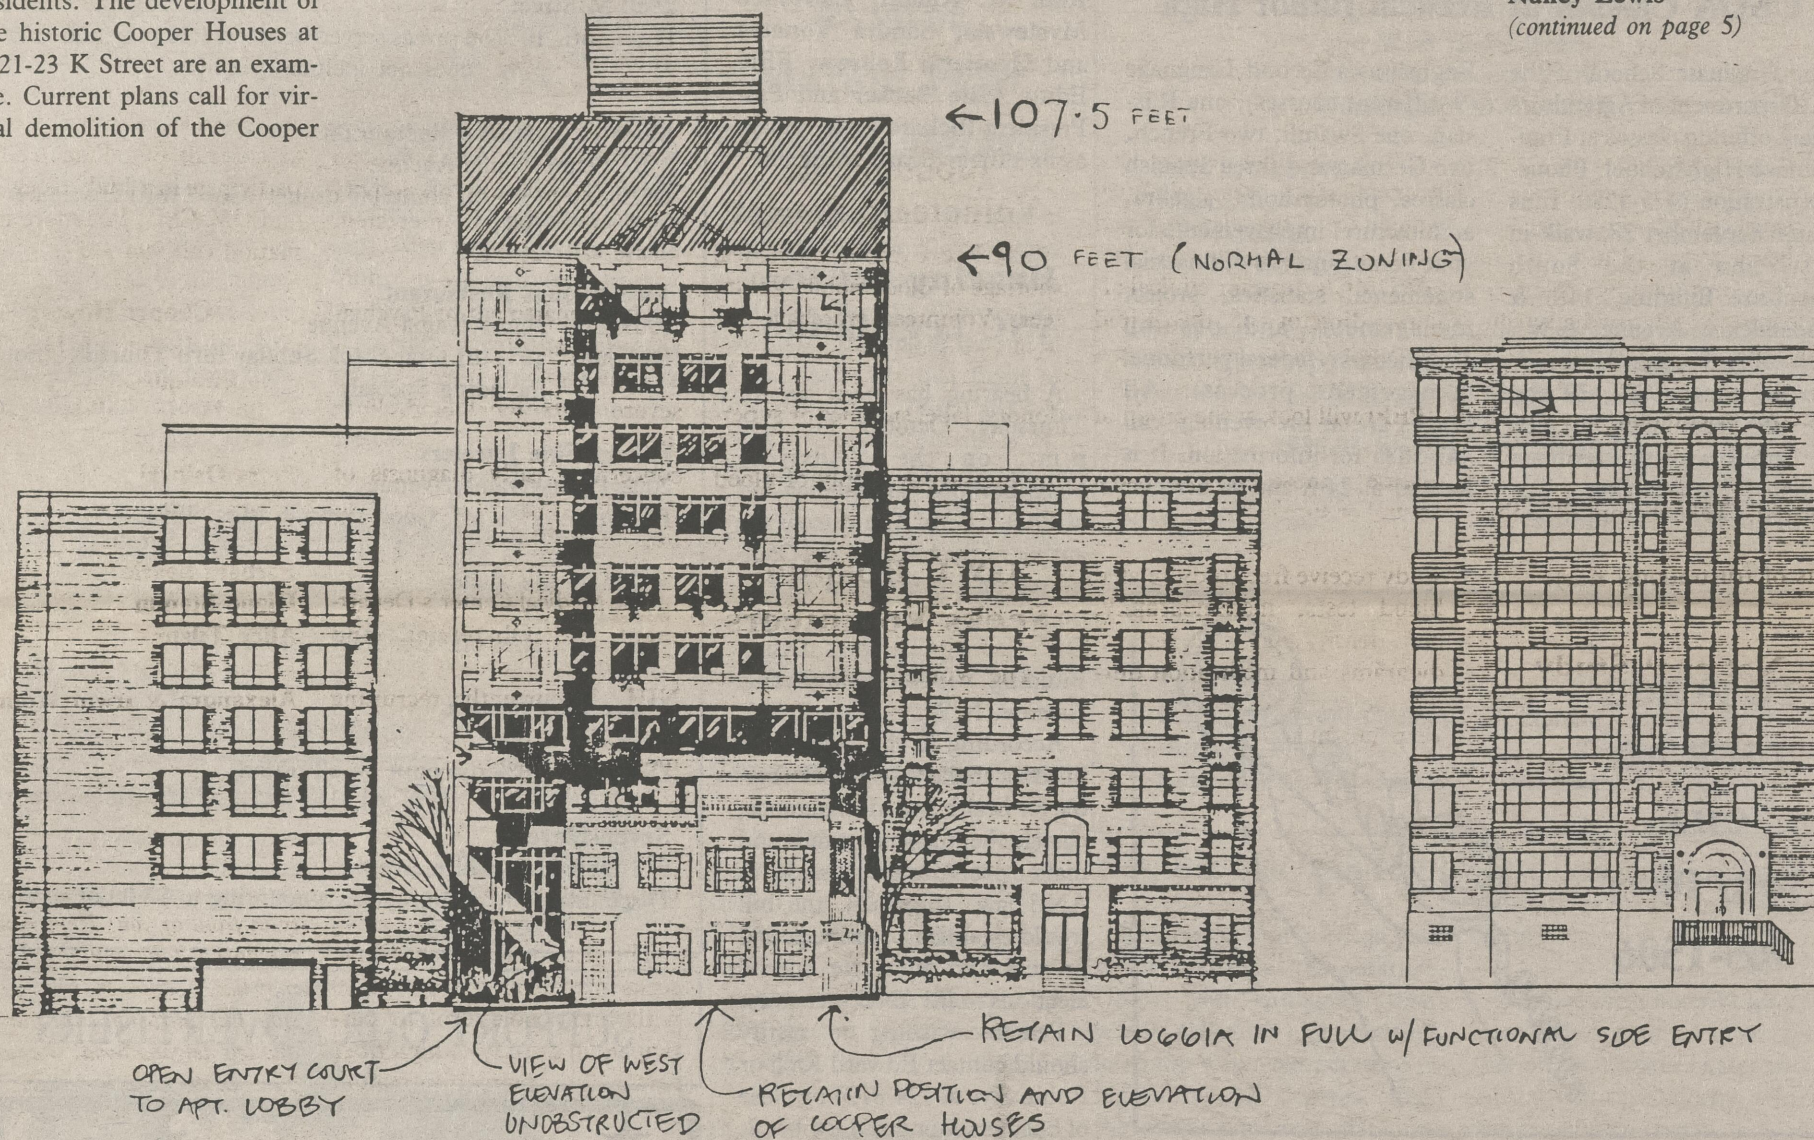 sidents. The development of
e historic Cooper Houses at
21-23 K Street are an exam-
e. Current plans call for vir-
al demolition of the Cooper
Nancy Lewis
(continued on page 5)
←107.5 FEET
←90 FEET (NORMAL ZONING)
OPEN ENTRY COURT
TO APT. LOBBY
VIEW OF WEST
ELEVATION
UNOBSTRUCTED
RETAIN POSITION AND ELEVATION
OF COOPER HOUSES
RETAIN LOGGIA IN FULL W/FUNCTIONAL SIDE ENTRY